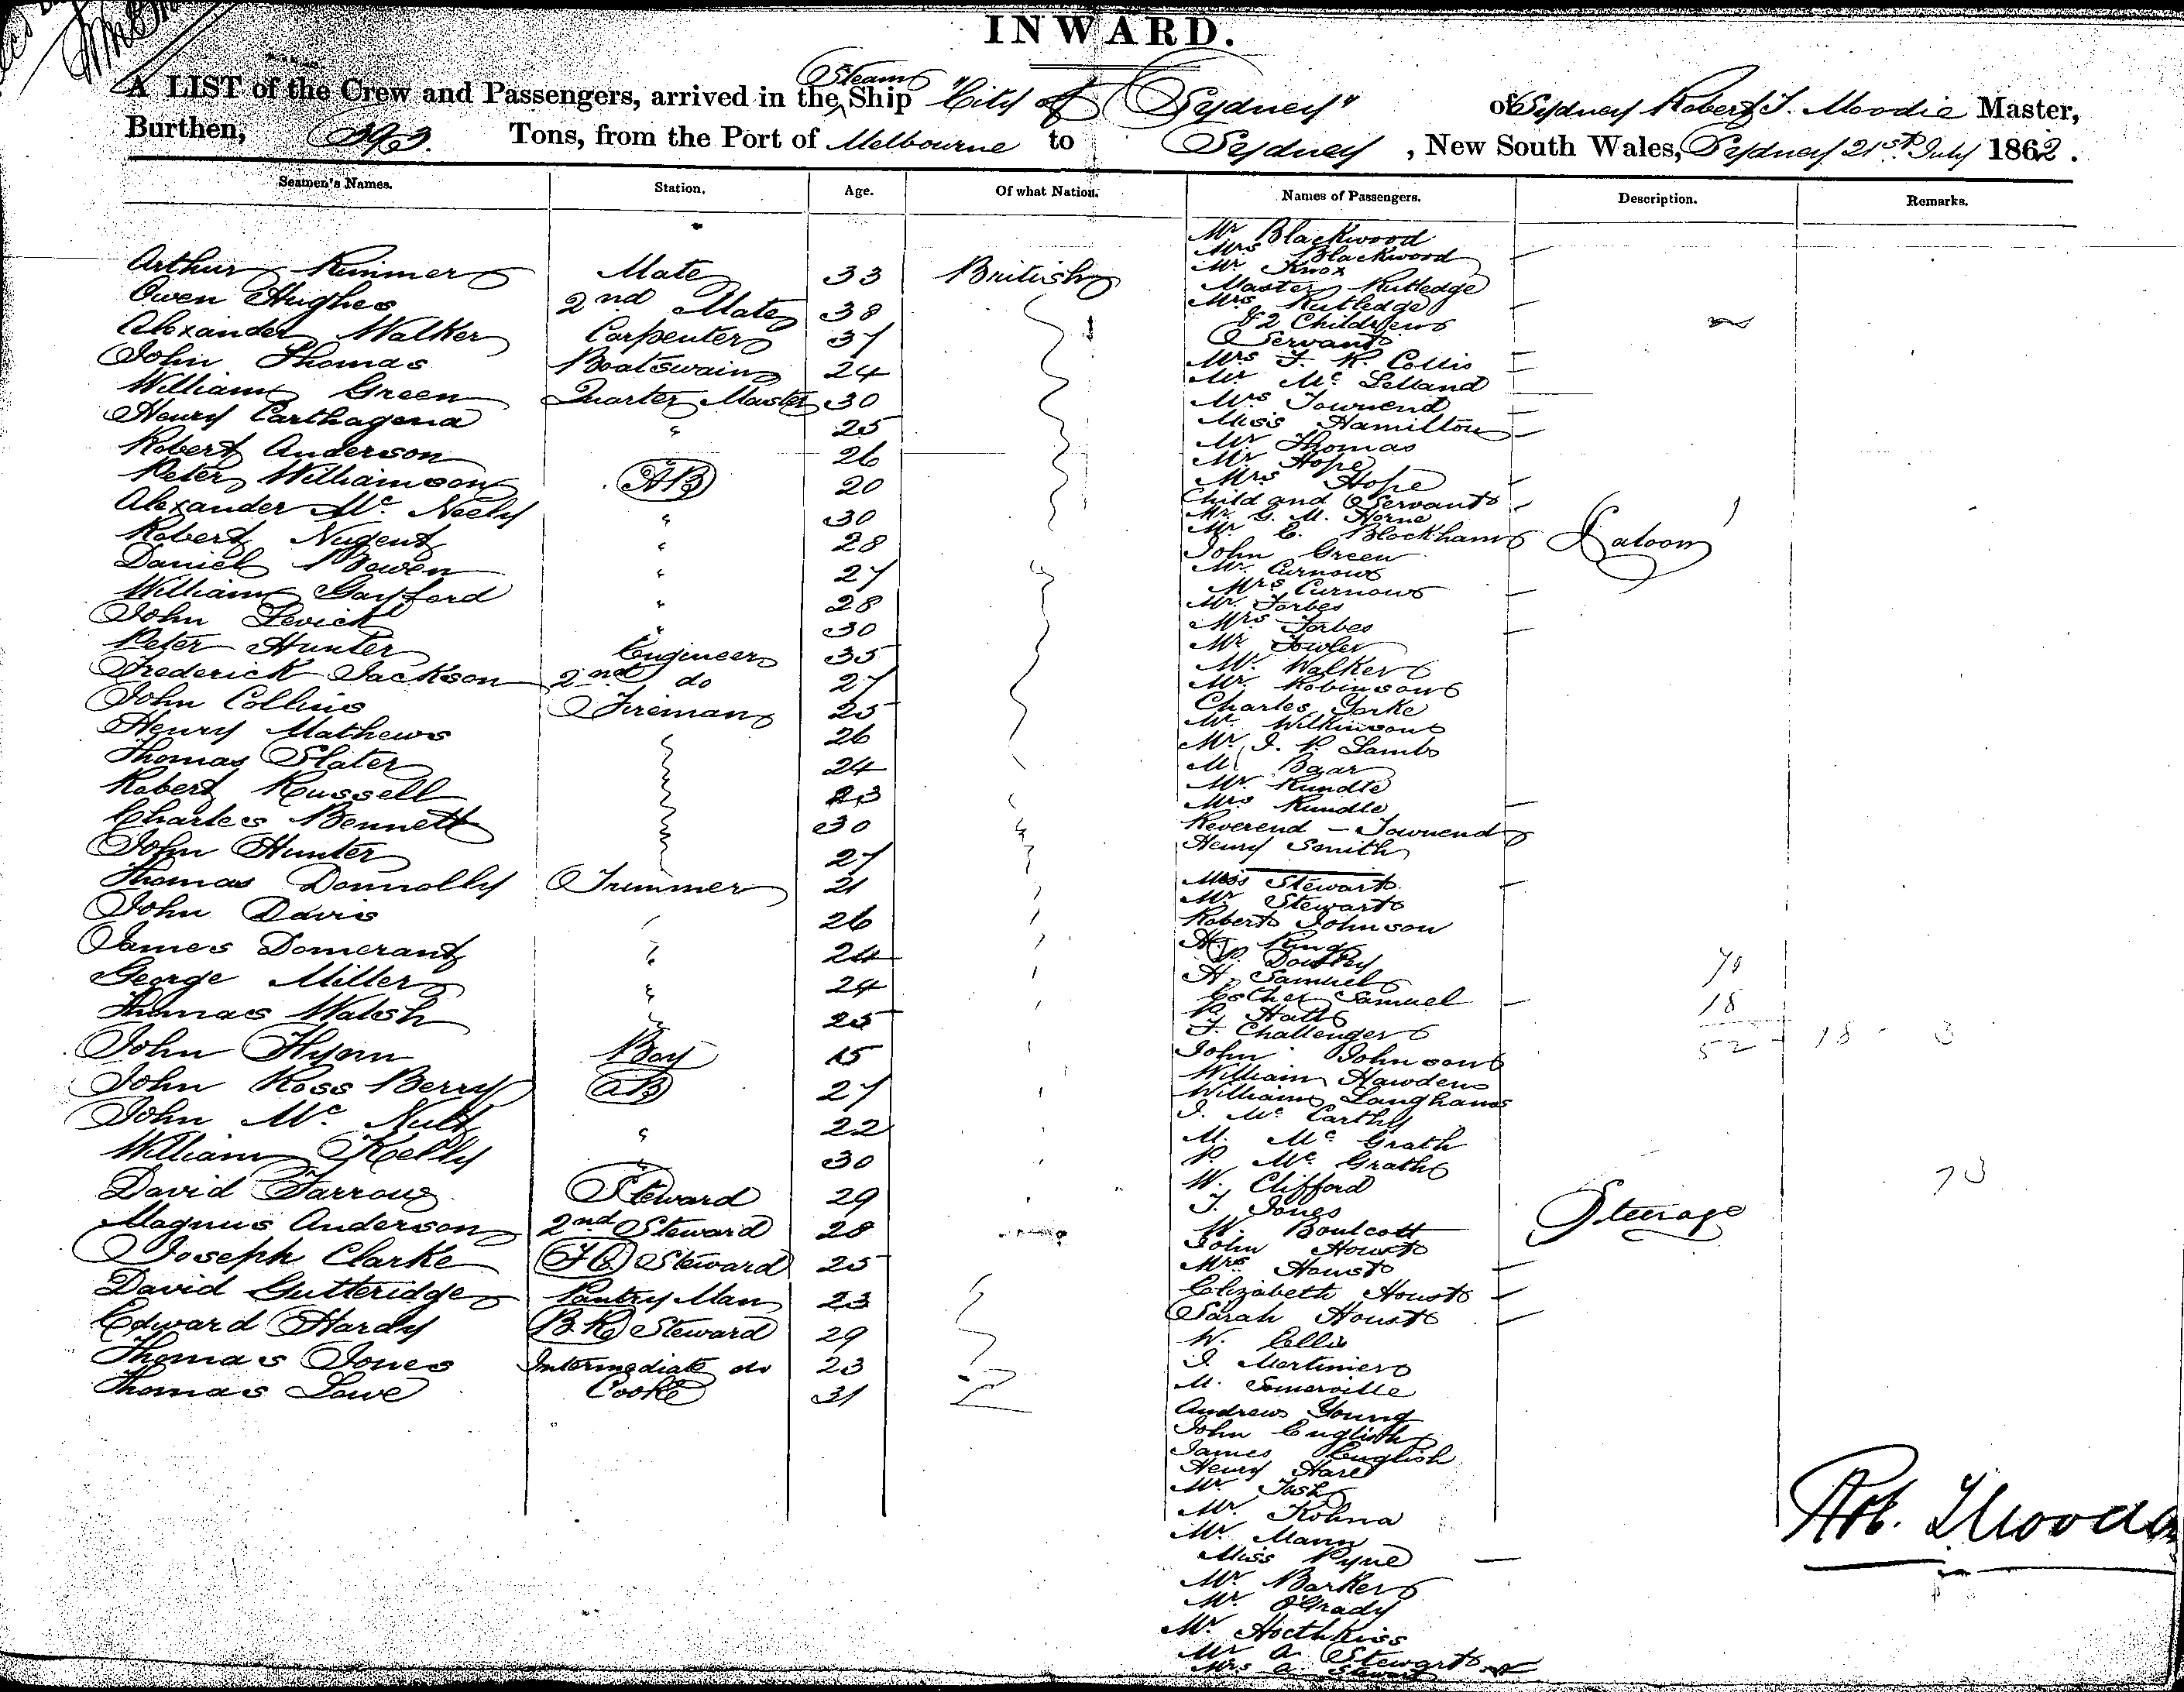 INWARD.
A LIST of the Crew and Passengers, arrived in the Steam Ship "City of Sydney" of Sydney Robert T. Moodie Master,
Burthen, Tons, from the Port of Melbourne to Sydney, New South Wales, Sydney 21st July 1862.
Seamen's Names. Station. Age. Of what Nation. Names of Passengers. Description. Remarks.
Arthur Rimmer Mate 33 British
Owen Hughes 2nd Mate 38
Alexander Walker Carpenter 37
John Thomas Boatswain 24
William Green Quarter Master 30
Henry Carthagena " 25
Robert Anderson 26
Peter Williamson AB 20
Alexander Mc Neely " 30
Robert Nugent " 28
Daniel Bowen " 27
William Gayford " 28
John Levick " 30
Peter Hunter Engineer 35
Frederick Jackson 2nd do 27
John Collins Fireman 25
Henry Mathews 26
Thomas Slater 24
Robert Russell 23
Charles Bennett 30
John Hunter 27
Thomas Donnolly Trimmer 21
John Davis 26
James Domerant 24
George Miller 24
Thomas Walsh 25
John Flynn Boy 15
John Ross Berry AB 27
John Mc Nult " 22
William Kelly " 30
David Farrow Steward 29
Magnus Anderson 2nd Steward 28
Joseph Clarke F.C. Steward 25
David Gutteridge Pantry Man 23
Edward Hardy B.R. Steward 29
Thomas Jones Intermediate do 23
Thomas Lowe Cook 31
Mr Blackwood
Mrs Blackwood
Mr Knox
Master Rutledge
Mrs Rutledge
& 2 Children
Servant
Mrs J. R. Collis
Mr Mc Lelland
Mrs Townend
Miss Hamilton
Mr Thomas
Mr Hope
Mrs Hope
Child and Servant
Mr G. M. Horne
Mr C. Blockham Saloon
John Green
Mr Curnow
Mrs Curnow
Mr. Forbes
Mrs Forbes
Mr Fowler
Mr. Walker
Mr. Robinson
Charles Yorke
Mr. Wilkinson
Mr. J. P. Lamb
M. Bgar
Mr Rundle
Mrs Rundle
Reverend - Townend
Henry Smith
Miss Stewart
Mr Stewart
Robert Johnson
H. King
H. Samuel 70
Esther Samuel 18
P. Hall
J. Challenger 52 18 3
John Johnson
William Hawden
William Langham
J. Mc Carthy
M. Mc Grath
P. Mc Grath 73
W. Clifford
T. Jones Steerage
W. Boulcott
John Houst
Mrs Houst
Elizabeth Houst
Sarah Houst
W. Ellis
J. Mortimer
M. Somerville
Andrew Young
John English
James English
Henry Hare
Mr. Tash
Mr. Kohna
Mr. Mann
Miss Pyne
Mr. Barker
Mr. O'Grady
Mr. Hocthkiss
Mr A Stewart
Mrs A Stewart
Rob. T Moodie